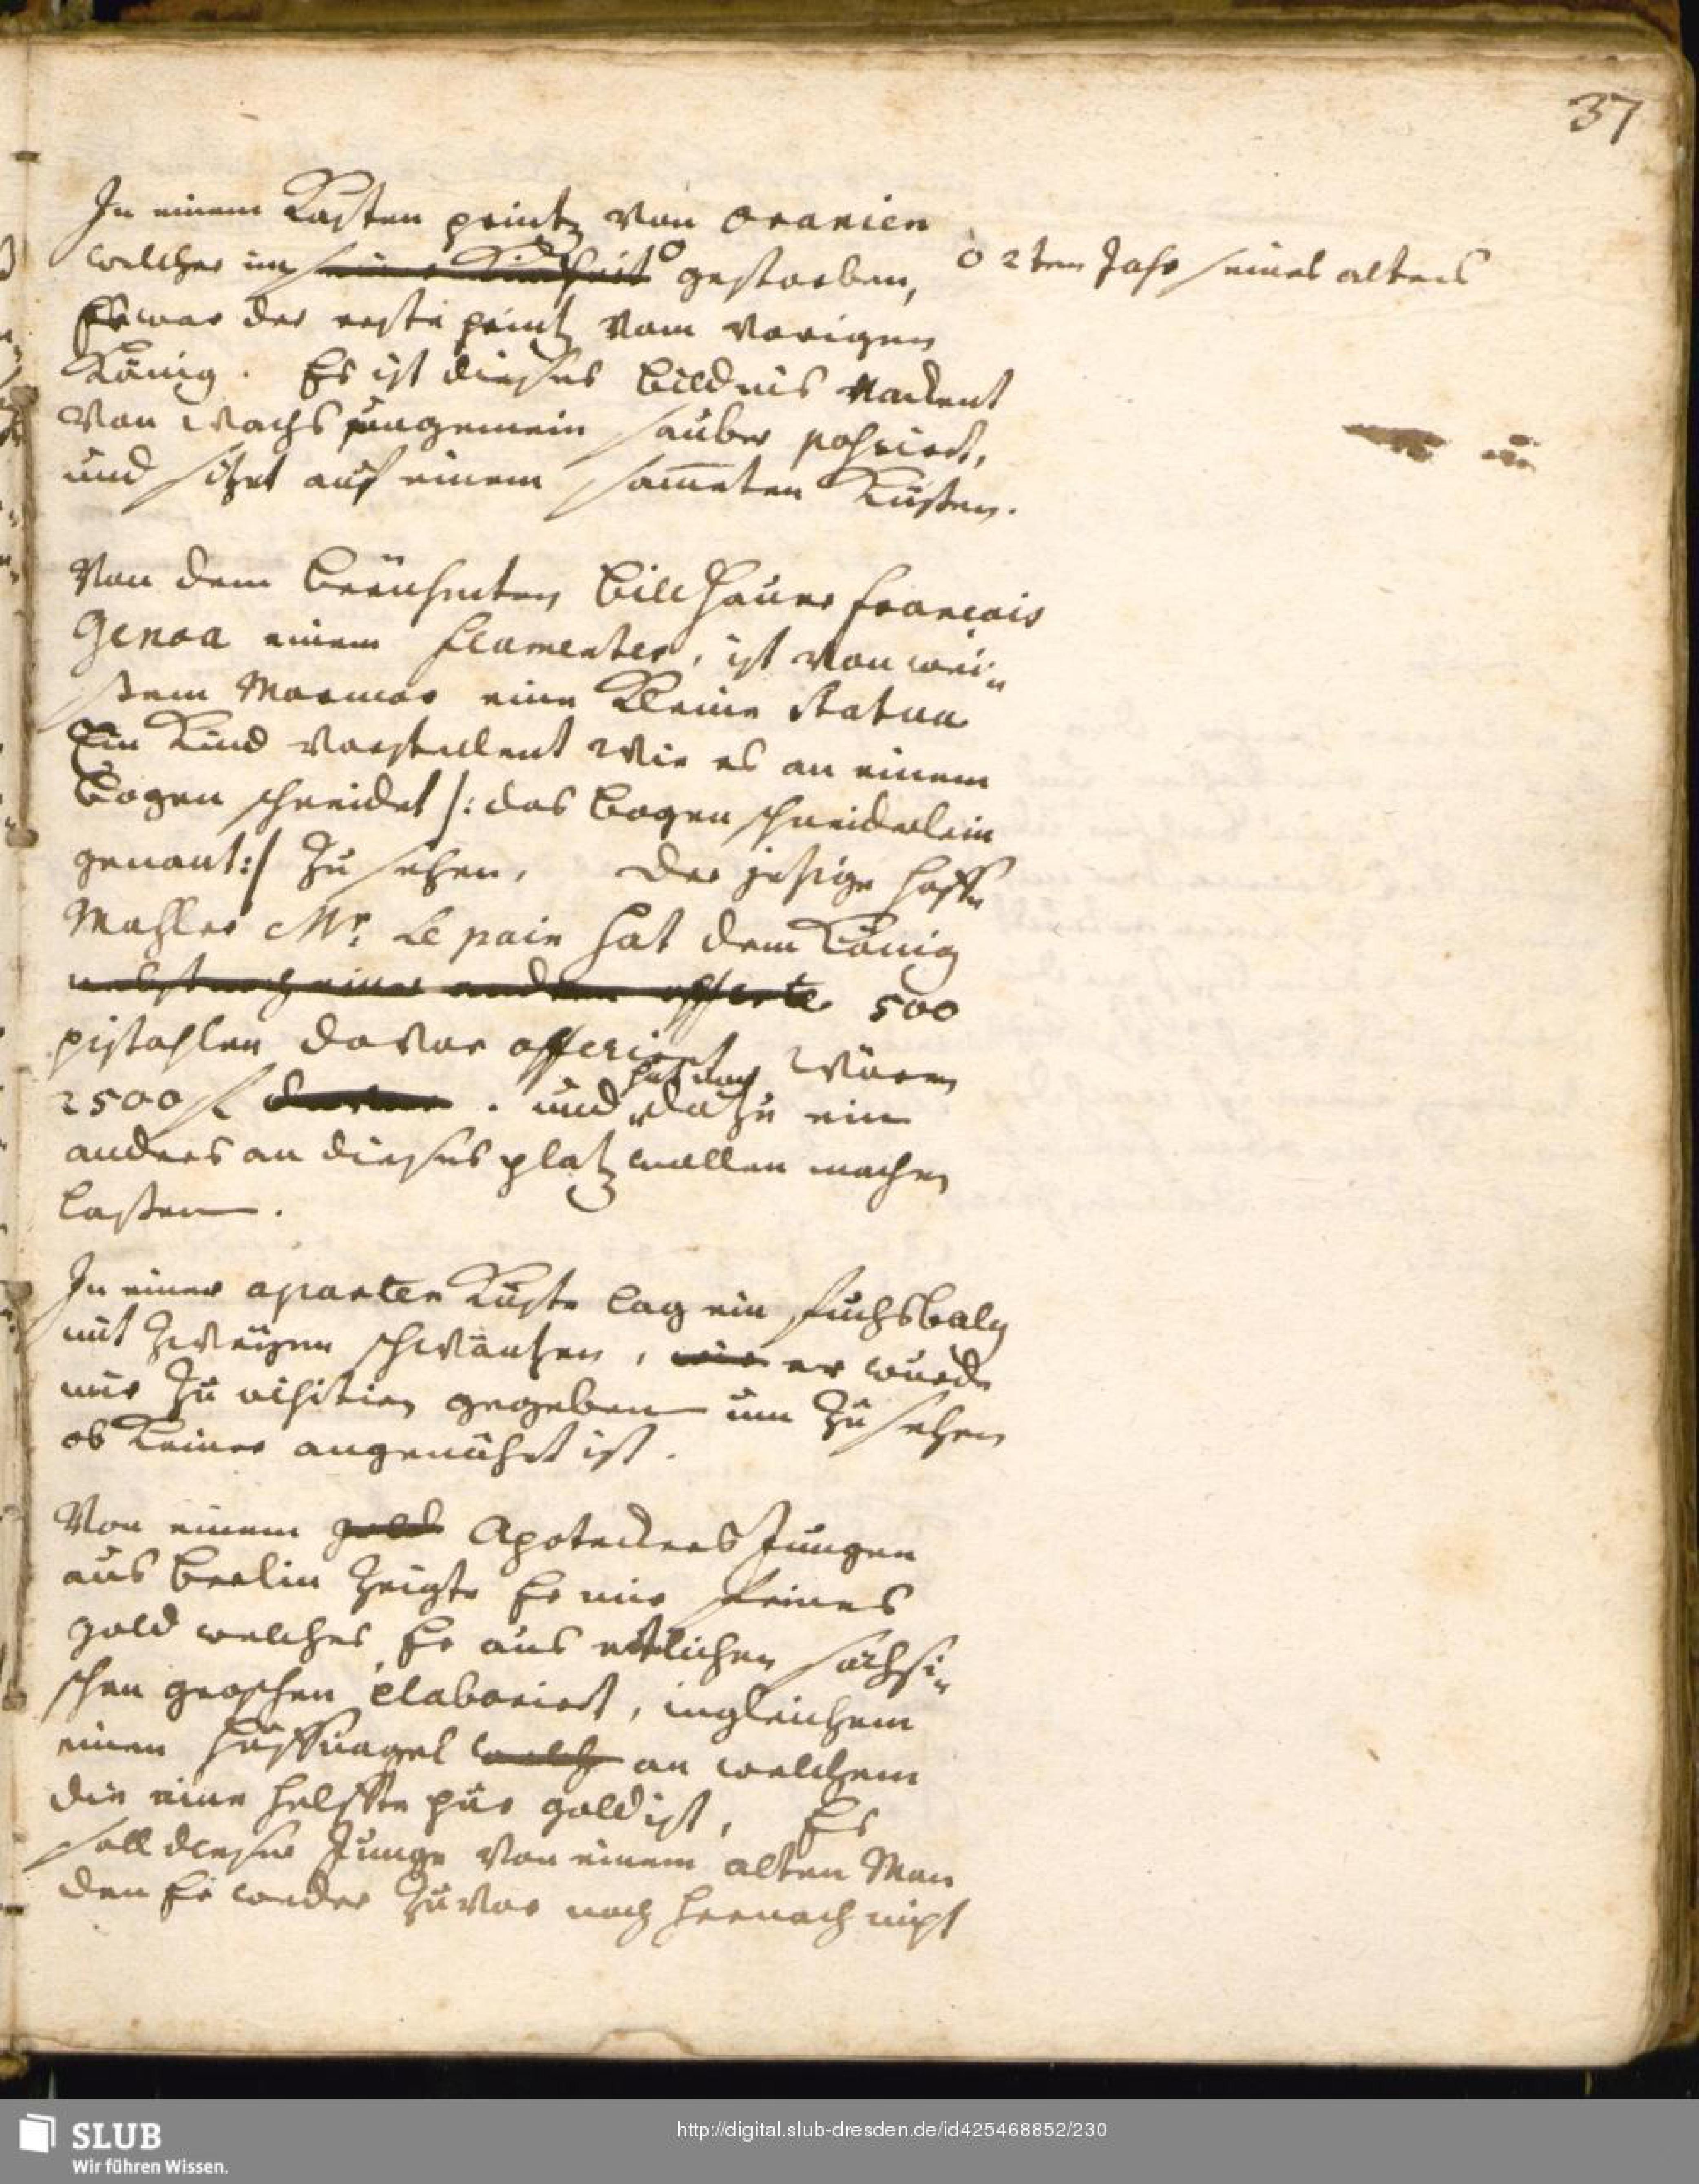 37
In einem Kasten printz von Oranien
welcher im seiner Kindheit o gestorben,
o 2ten Jahr seines alters
Es war der erste printz vom vorigen
König. Es ist dieses bildnis nackent
von wachs ungemein sauber pohsirt,
und sitzet auf einem sam̄eten Küßen.
Von dem berühmten bildhauer François
Genoa einem Flamender, ist von wei-
ßem Marmor eine Kleine Statua
Ein Kind vorstellent wie es an einem
bogen schneidet /: das bogenschneiderlein
genant :/ zu sehen. der jetzige hoff-
Mahler Mr. Le pain hat dem König
nebst noch einer andern offerte 500
pistohlen davor offerirt, wären
2500 f davor. und hat noch dazu ein
anders an dieses platz wollen machen
laßen.
In einer aparten Küste lag ein fuchsbalg
mit zweyen schwäntzen, wie er wurde
mir zu visitirn gegeben um zu sehen
ob keiner angenähet ist.
Von einem gold Apoteckers Jungen
aus berlin zeigte Er mir feines
gold welches Er aus etlichen sächsi-
schen groschen elaborirt, ingleichem
einen huffnagel welch an welchem
die eine helffte pur gold ist, Es
soll dieser Junge von einem alten Man
den Er weder zuvor noch hernach nicht
SLUB
Wir führen Wissen.
http://digital.slub-dresden.de/id425468852/230